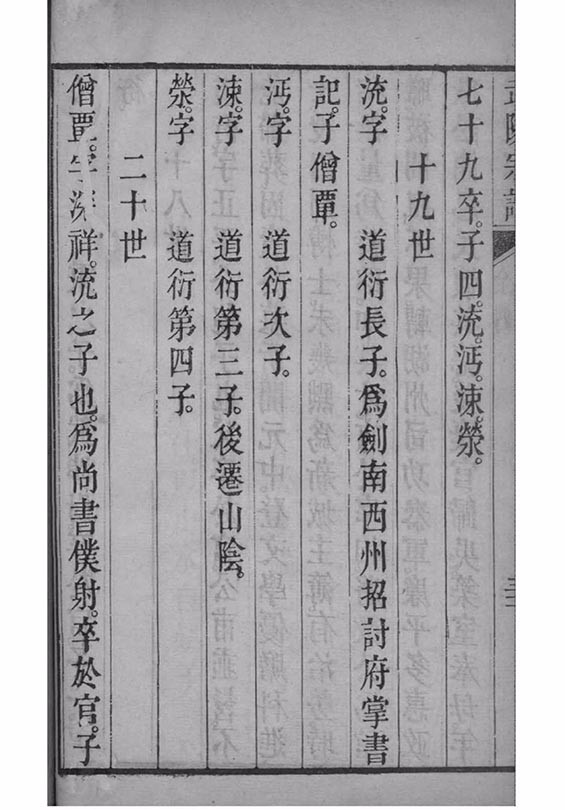 七十九卒。子四。沇。沔。涑。滎。
十九世
沇。字　道衍長子。爲劍南西州招討府掌書
記。子僧覃。
沔。字　道衍次子。
涑。字　道衍第三子。後遷山陰。
滎。字　道衍第四子。
二十世
僧覃。字　祥。沇之子也。爲尚書僕射。卒於官。子